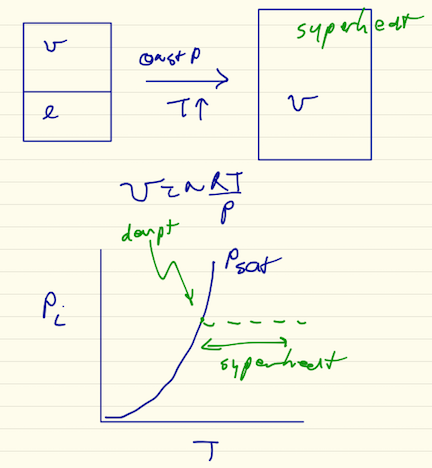 v
l
const P
T↑
superheat
v
V = n RT/P
dewpt
Psat
Pi
superheat
T